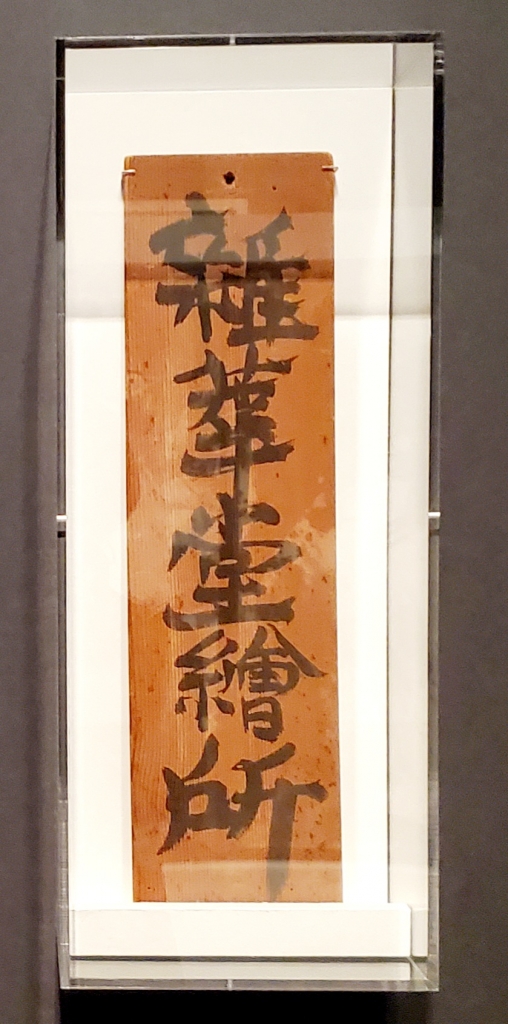 雜華堂繪所